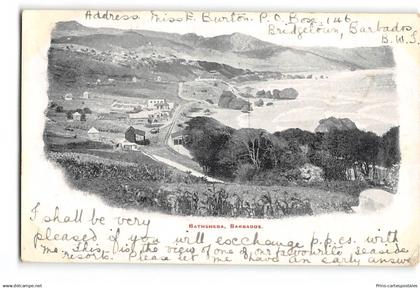 Address Miss E. Burton. P.O. Box. 146
Bridgetown, Barbados.
B.W.I.
Bathsheba, Barbados.
I shall be very
pleased if you will exchange p.p.cs. with
me. This is the view of one of our favourite seaside
resorts. Please let me have an early answer
www.cartespostales.eu
Prix-cartespostales.eu